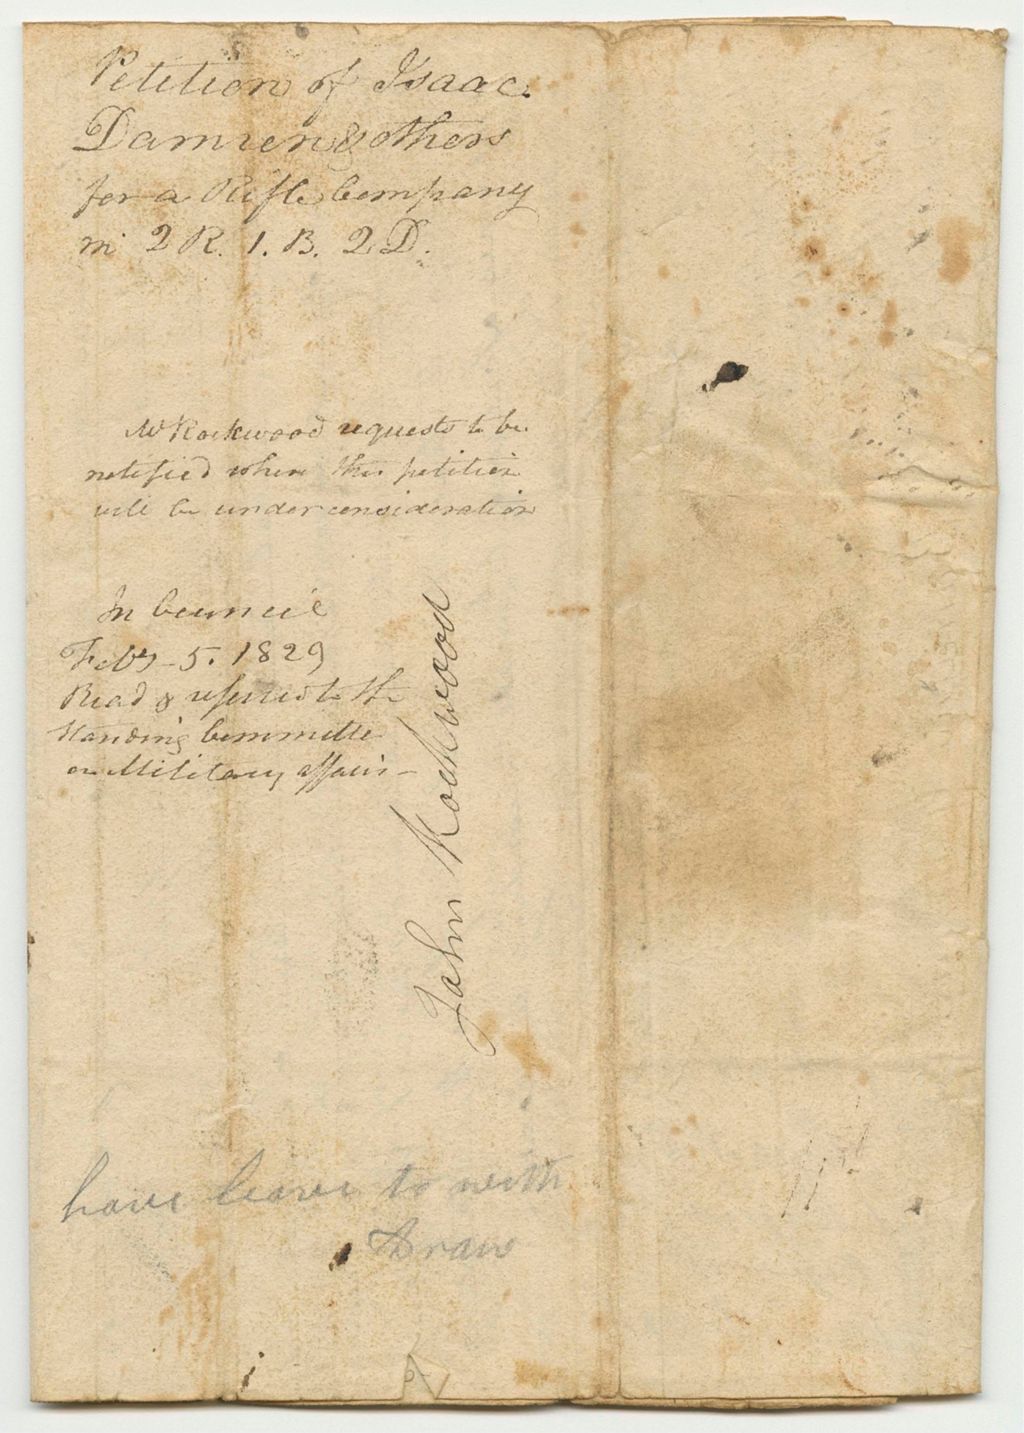 Petition of Isaac
Damren & others
for a Rifle Company
in 2 R. 1. B. 2 D.
Mr Rockwood requests to be
notified when this petition
will be under consideration
In Council
Feby 5. 1829
Read & referred to the
Standing Committee
on Military affairs -
John Rockwood
have leave to with
draw